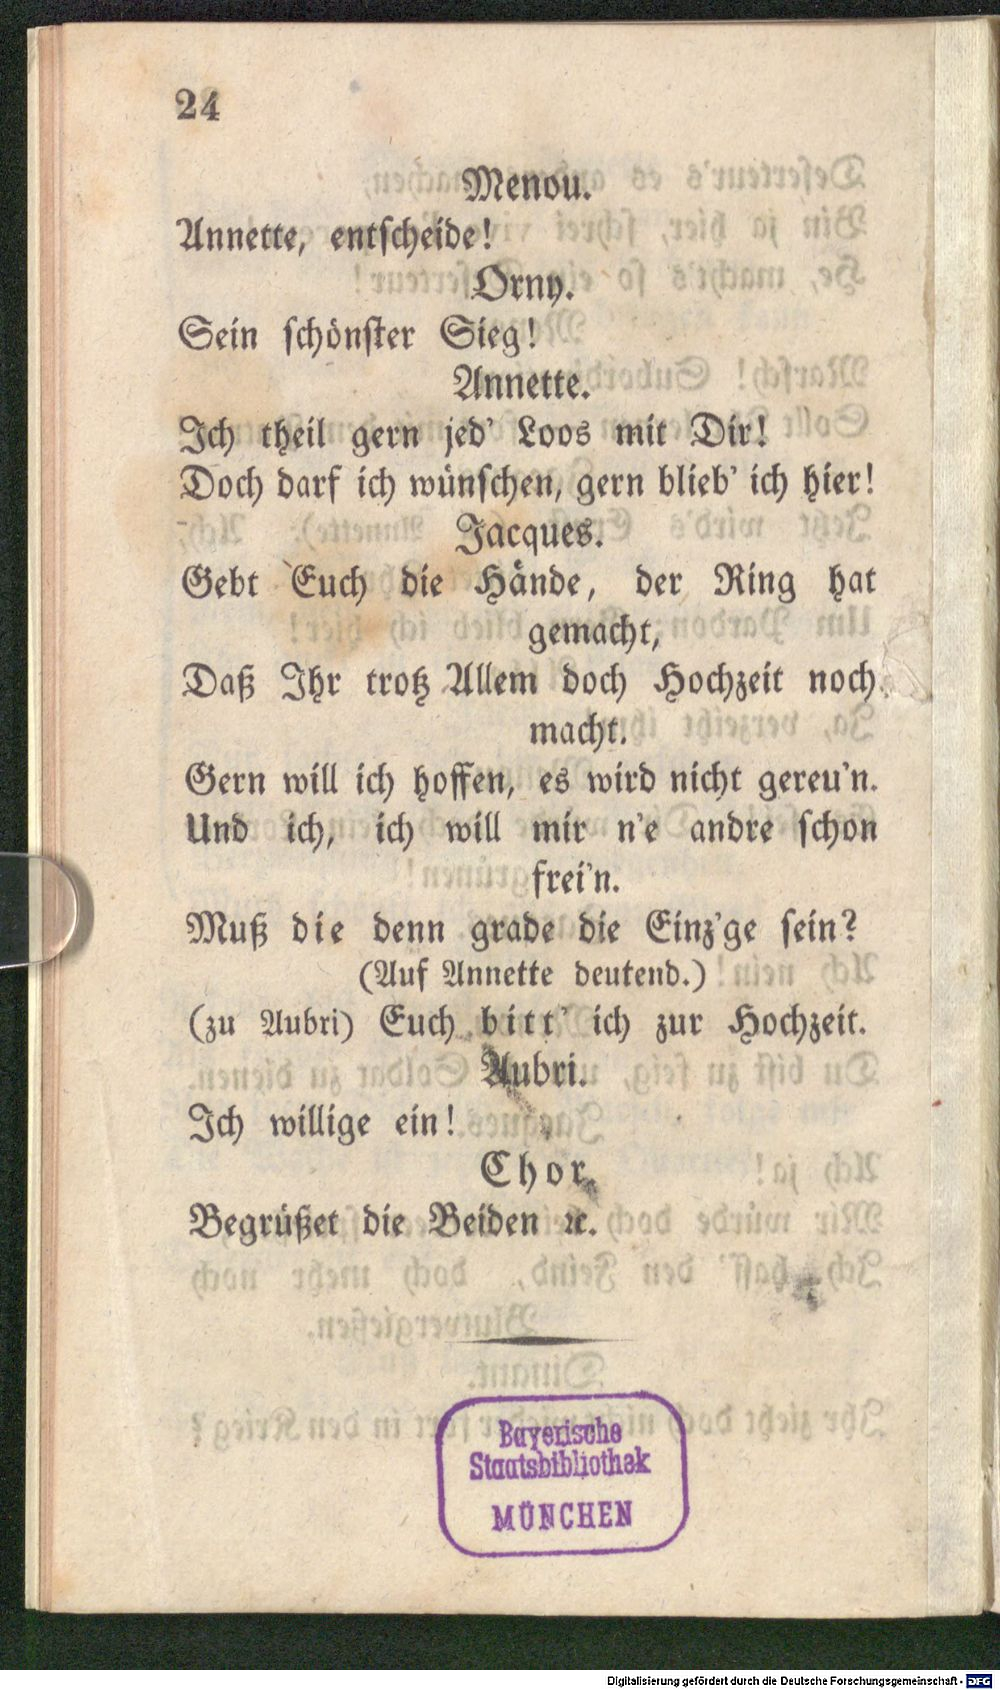 24
Menou.
Annette, entscheide!
Orny.
Sein schönster Sieg!
Annette.
Ich theil gern jed' Loos mit Dir!
Doch darf ich wünschen, gern blieb' ich hier!
Jacques.
Gebt Euch die Hände, der Ring hat
gemacht,
Daß Ihr trotz Allem doch Hochzeit noch
macht.
Gern will ich hoffen, es wird nicht gereu'n.
Und ich, ich will mir n'e andre schon
frei'n.
Muß die denn grade die Einz'ge sein?
(Auf Annette deutend.)
(zu Aubri) Euch bitt' ich zur Hochzeit.
Aubri.
Ich willige ein!
Chor.
Begrüßet die Beiden ꝛc.
Bayerische
Staatsbibliothek
MÜNCHEN
Digitalisierung gefördert durch die Deutsche Forschungsgemeinschaft - DFG